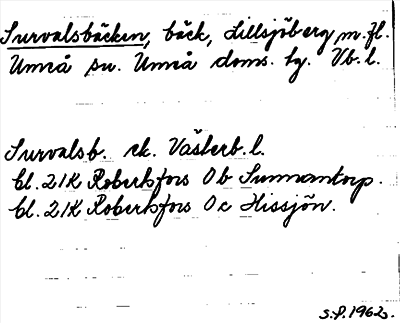 Survalsbäcken, bäck, Lillsjöberg m.fl.
Umeå sn. Umeå doms. hg. Vb. l.
Survalsb. ek. Västerb. l.
bl. 21K Robertsfors 0 b Sunnansorp.
bl. 21K Robertsfors 0 c Hissjön.
s.p. 1962.